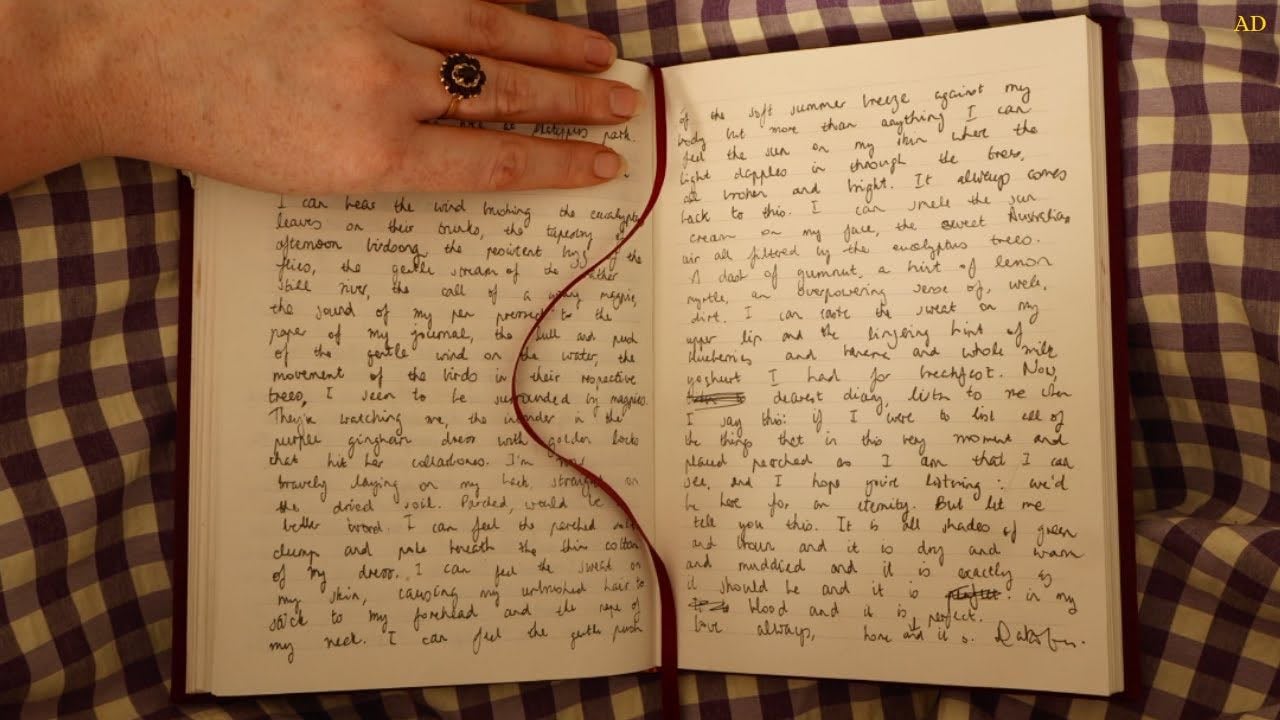 AD
at platypus park.
I can hear the wind brushing the eucalyptus
leaves on their trunks, the tapestry of
afternoon birdsong, the persistent buzz of the
flies, the gentle stream of the rather
still river, the call of a young magpie,
the sound of my pen pressed to the
paper of my journal, the pull and push
of the gentle wind on the water, the
movement of the birds in their respective
trees, I seem to be surrounded by magpies.
They're watching me, the intruder in the
purple gingham dress with golden locks
that hit her collarbones. I'm now
bravely laying on my back, straight on
the dried soil. Parched, would be
better word. I can feel the parched soil
clump and poke beneath the thin cotton
of my dress. I can feel the sweat on
my skin, causing my unbrushed hair to
stick to my forehead and the nape of
my neck. I can feel the gentle push
of the soft summer breeze against my
body but more than anything I can
feel the sun on my skin where the
light dapples in through the trees,
all broken and bright. It always comes
back to this. I can smell the sun
cream on my face, the sweet Australian
air all filtered by the eucalyptus trees.
A dash of gumnut, a hint of lemon
myrtle, an overpowering sense of, well,
dirt. I can taste the sweat on my
upper lip and the lingering hint of
blueberries and banana and whole milk
yoghurt I had for breakfast. Now,
dearest diary, listen to me when
I say this: if I were to list all of
the things that in this very moment and
placed parched as I am that I can
see, and I hope you're listening: we'd
be here for an eternity. But let me
tell you this. It is all shades of green
and brown and it is dry and warm
and muddied and it is exactly as
it should be and it is in my
blood and it is perfect.
love always, home and it is.